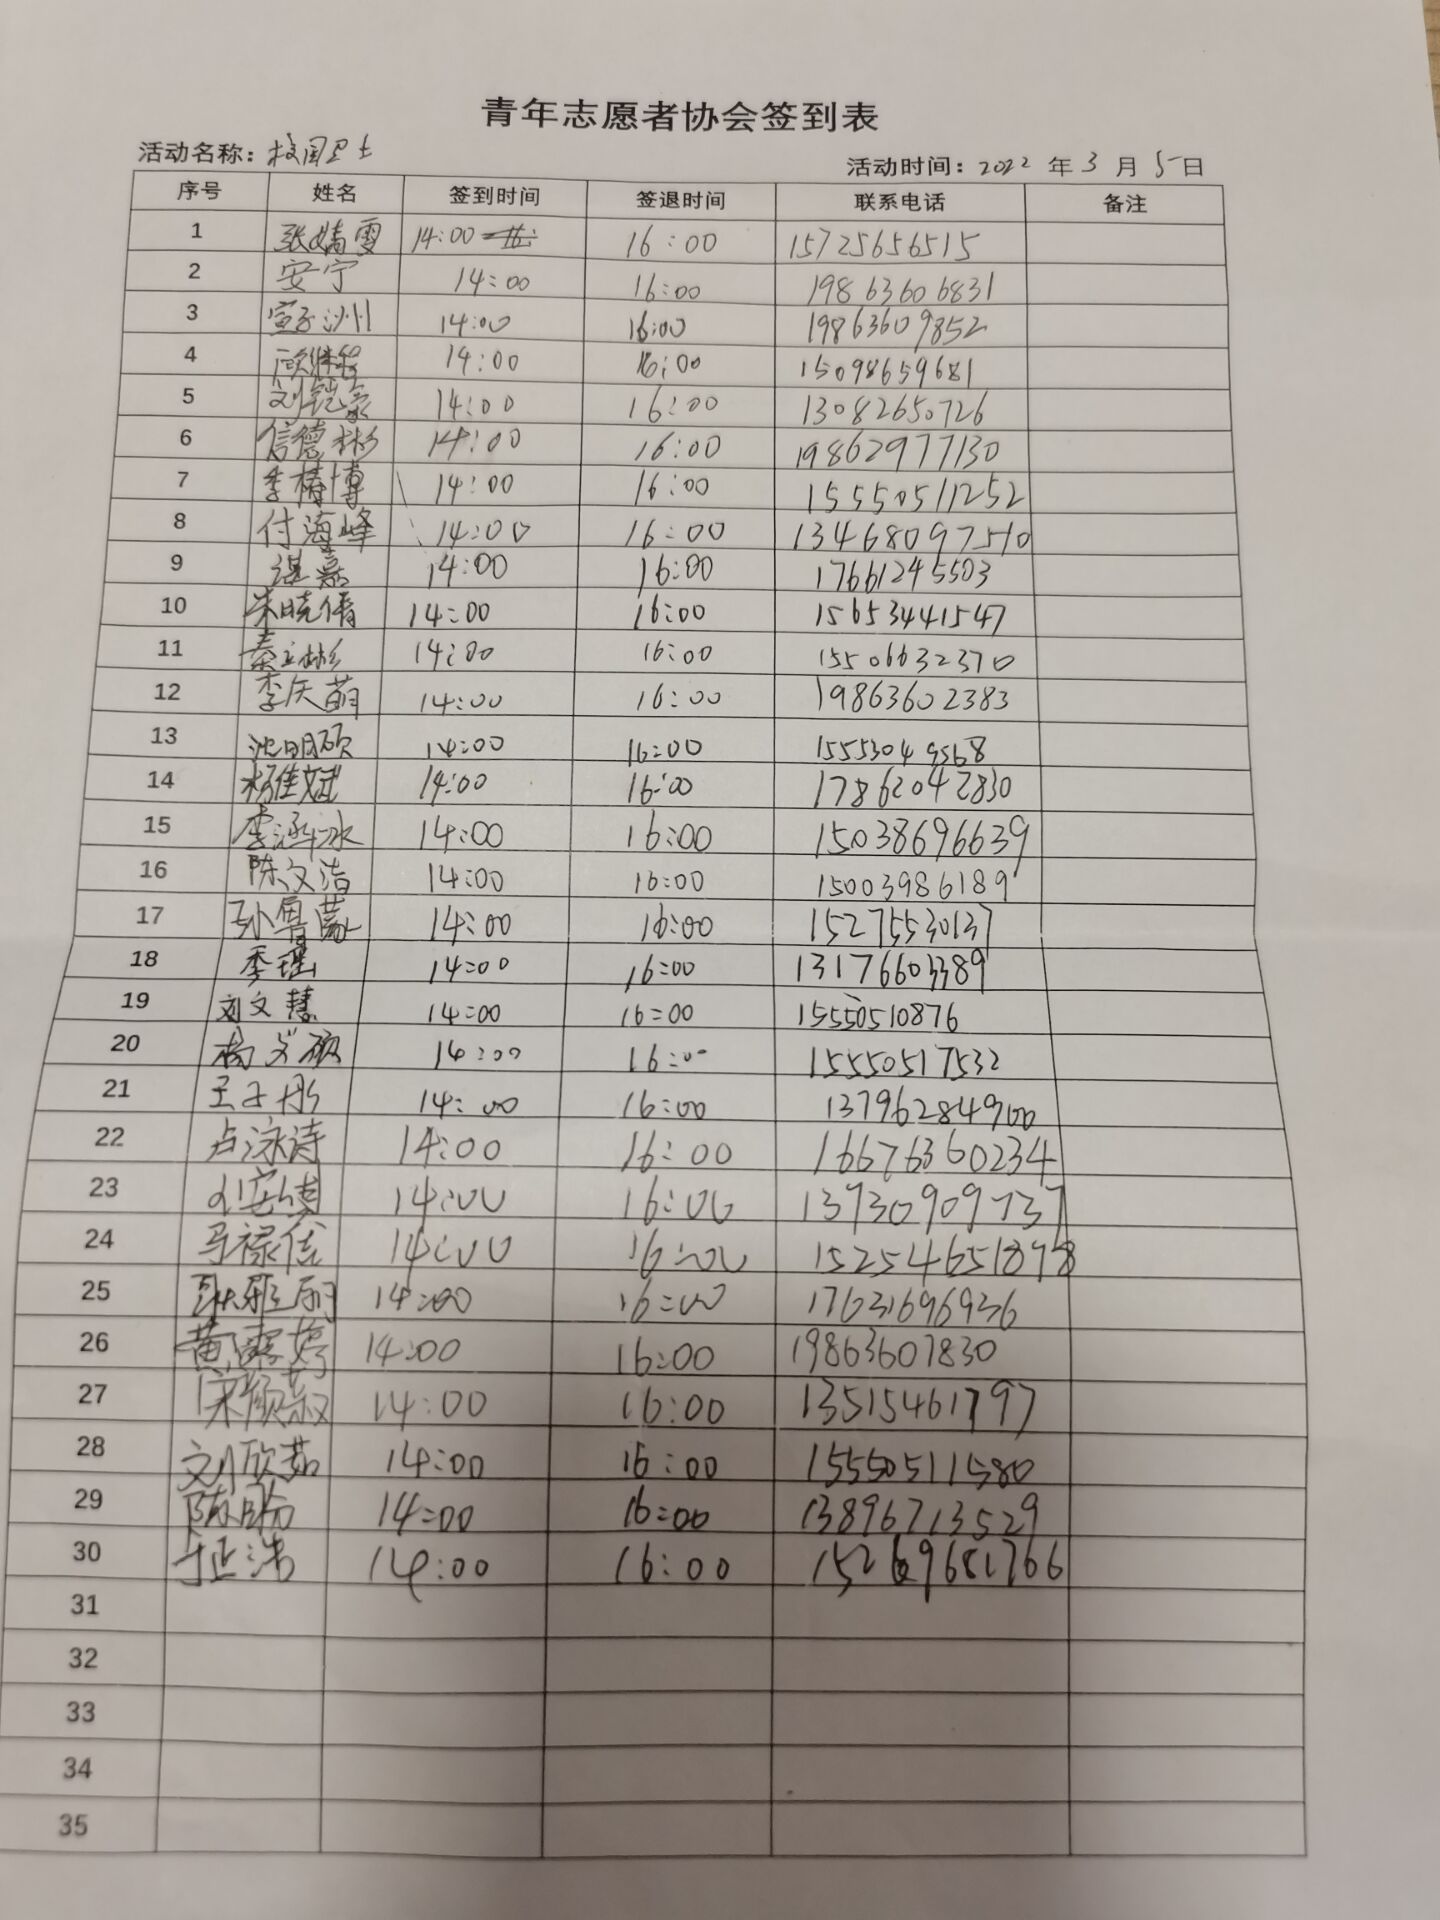 青年志愿者协会签到表
活动名称：校园卫士 活动时间：2022 年 3 月 5 日
序号 姓名 签到时间 签退时间 联系电话 备注
1 张婧雯 14:00 16:00 15725656515
2 安宁 14:00 16:00 19863606831
3 14:00 16:00 19863609852
4 14:00 16:00 15098659681
5 刘铠豪 14:00 16:00 13082650726
6 信德彬 14:00 16:00 19862977130
7 李椿博 14:00 16:00 15550511252
8 付海峰 14:00 16:00 13468097510
9 谌嘉 14:00 16:00 17661245503
10 朱晓倩 14:00 16:00 15653441547
11 秦立彬 14:00 16:00 15506632370
12 李庆萌 14:00 16:00 19863602383
13 沈明硕 14:00 16:00 15553049568
14 杨佳斌 14:00 16:00 17862042830
15 李涵冰 14:00 16:00 15038696639
16 陈文洁 14:00 16:00 15003986189
17 孙鲁蒙 14:00 16:00 15275530137
18 季瑶 14:00 16:00 13176603389
19 刘文慧 14:00 16:00 15550510876
20 14:00 16:00 15550517532
21 王子彤 14:00 16:00 13796284900
22 卢泳诗 14:00 16:00 16676360234
23 14:00 16:00 13730909737
24 马禄佳 14:00 16:00 15254651878
25 耿雅丽 14:00 16:00 17631696936
26 黄露婷 14:00 16:00 19863607830
27 宋颜菽 14:00 16:00 13515461797
28 刘欣茹 14:00 16:00 15550511580
29 陈旸 14:00 16:00 13896713529
30 于正浩 14:00 16:00 15269681766
31
32
33
34
35